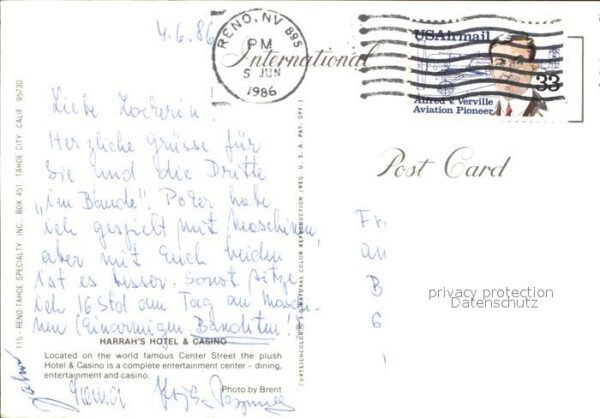 4.6.86
RENO, NV 895
PM
5 JUN
1986
USAirmail
33
Alfred V. Verville
Aviation Pioneer
International
Post Card
Liebe
Herzliche Grüsse für
Sie und die Dritte
"im Bunde". Poker habe
ich gespielt mit Maschinen,
aber mit Euch beiden
ist es besser. Sonst sitze
ich 16 Std am Tag an Maschi-
nen (Einarmigen Banditen!)
HARRAH'S HOTEL & CASINO
Located on the world famous Center Street the plush
Hotel & Casino is a complete entertainment center - dining,
entertainment and casino.
Photo by Brent
115 - RENO-TAHOE SPECIALTY, INC. BOX 451, TAHOE CITY, CALIF. 95730
CURTEICHCOLOR® 3-D NATURAL COLOR REPRODUCTION (REG. U.S.A. PAT. OFF.)
Fr.
an
B
6
privacy protection
Datenschutz